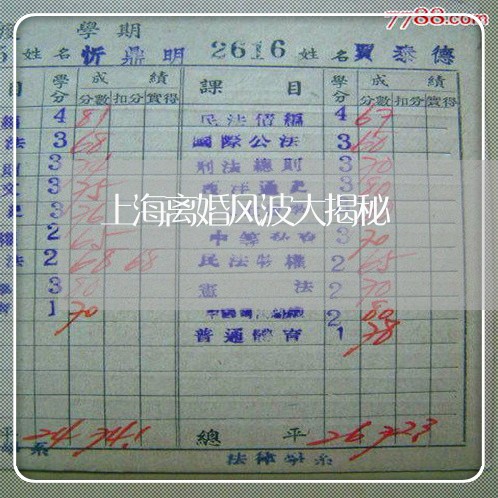 7788.com
學期
5 姓名 忻鼎明 2616 姓名 賈泰德
目 學分 成績 課目 學分 成績
分數 扣分 實得 分數 扣分 實得
4 81 民法債編 4 67
法 3 68 國際公法 3 60
3 刑法總則 3 70
3 75 西洋通史 3 80
上海离婚风波大揭秘
2 65 3 70
法 2 68 68 民法物權 2 65
3 80 憲法 2 70
1 70 2 80
普通體育 1 78
平 24 74.1 總平 26 72.3
系 法律學系